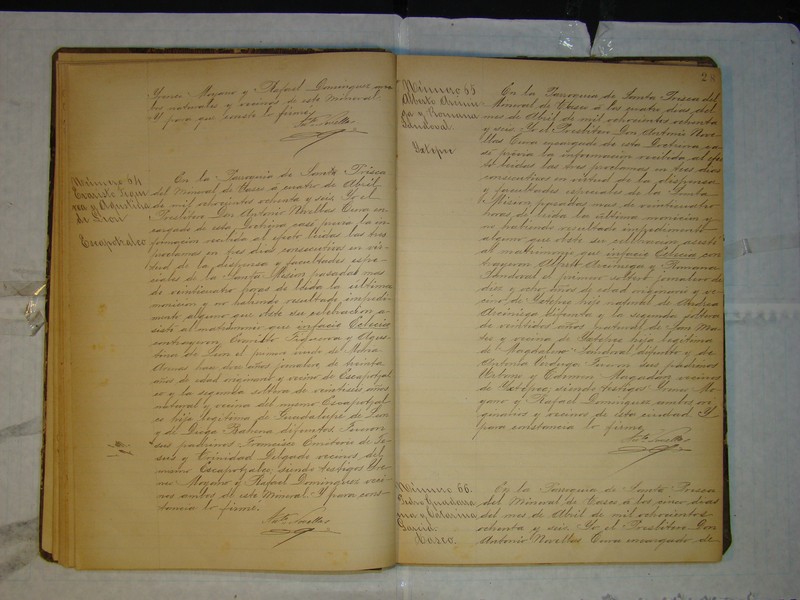 Yrineo Moyano y Rafael Dominguez am-
bos naturales y vecinos de este Mineral.
Y para que conste lo firmé.
Número 64
Evaristo Figue
roa y Agustina
de Leon
Escapotzalco
En la Parroquia de Santa Prisca
del Mineral de Tasco á cuatro de Abril
de mil ochocientos ochenta y seis. Yo el
Presbitero Don Antonio Novellas Cura en-
cargado de esta Doctrina casé previa la in-
formacion recibida al efecto leidas las tres
proclamas en tres dias consecutivos en vir-
tud de la dispensa y facultades espe-
ciales de la Santa Mision pasadas mas
de veinticuatro horas de leida la última
monicion y no habiendo resultado impedi-
mento alguno que obste su celebracion a-
sistí al matrimonio que infacie Eclecia
contrageron Evaristo Figueroa y Agus-
tina de Leon el primero viudo de
hace dos años jornalero de treinta
años de edad originario y vecino de Escapotzal
co y la segunda soltera de veintiseis años
natural y vecina del mismo Escapotzal
co hija legitima de Guadalupe de Leon
y de Diega Bahena difuntos. Fueron
sus padrinos Francisco
y Trinidad Delgado vecinos del
mismo Escapotzalco; siendo testigos Yri-
neo Moyano y Rafael Dominguez veci-
nos ambos de este Mineral. Y para cons-
tancia lo firmé.
Anto. Novellas
28
Número 65
Alberto Arcini
ega y Romana
Sandoval.
Ystepec
En la Parroquia de Santa Prisca del
Mineral de Tasco á los cuatro dias del
mes de Abril de mil ochocientos ochenta
y seis. Yo el Presbitero Don Antonio Nove-
llas Cura encargado de esta Doctrina ca-
sé previa la informacion recibida al efec
to leidas las tres proclamas en tres dias
consecutivos en virtud de la dispensa
y facultades especiales de la Santa
Mision pasadas mas de veinticuatro
horas de leida la última monicion y
no habiendo resultado impedimento
alguno que obste su celebracion asistí
al matrimonio que infacie Eclecia con-
trageron Alberto Arciniega y Romana
Sandoval el primero soltero jornalero de
diez y ocho años de edad originario y ve-
cino de Ystepec hijo natural de Andrea
Arciniega difunta y la segunda soltera
de veintidos años, natural de San Ma-
teo y vecina de Ystepec hija legitima
de Magdaleno Sandoval difunto y de
Antonia Fueron sus padrinos
y vecinos
de Ystepec; siendo testigos Yrineo Mo-
yano y Rafael Dominguez ambos ori-
ginarios y vecinos de esta ciudad. Y
para constancia lo firmé.
Anto. Novellas
Número 66.
Pedro Guadarra
ma y Catarina
Garcia.
Tasco.
En la Parroquia de Santa Prisca
del Mineral de Tasco á los cinco dias
del mes de Abril de mil ochocientos
ochenta y seis. Yo el Presbitero Don
Antonio Novellas Cura encargado de